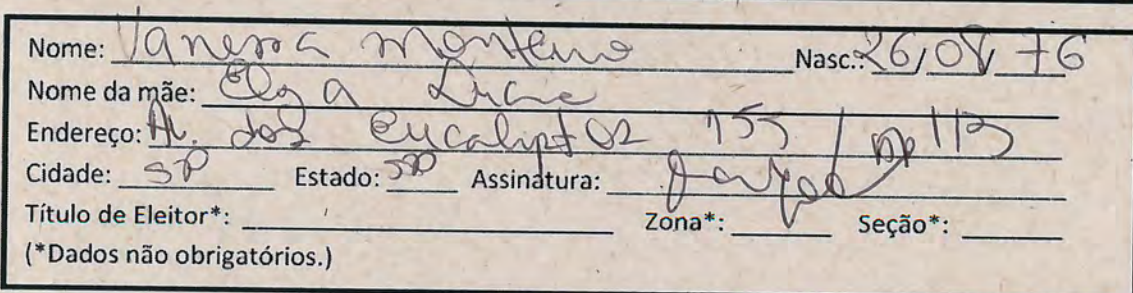 Nome: Vanessa Monteiro Nasc.: 26/08/76
Nome da mãe: Elza
Endereço: Av. dos Eucaliptos 155 / Ap 113
Cidade: SP Estado: SP Assinatura:
Título de Eleitor*: Zona*: Seção*:
(*Dados não obrigatórios.)